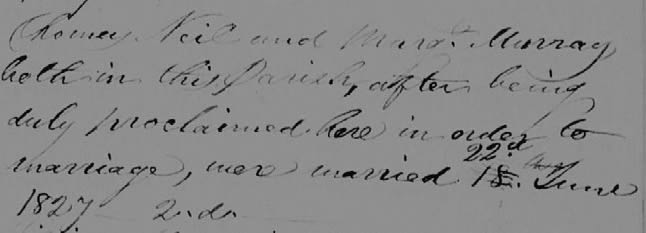 Thomas Neil and Margt. Murray
both in this Parish, after being
duly proclaimed here in order to
22d
marriage, were married 18. June
1827